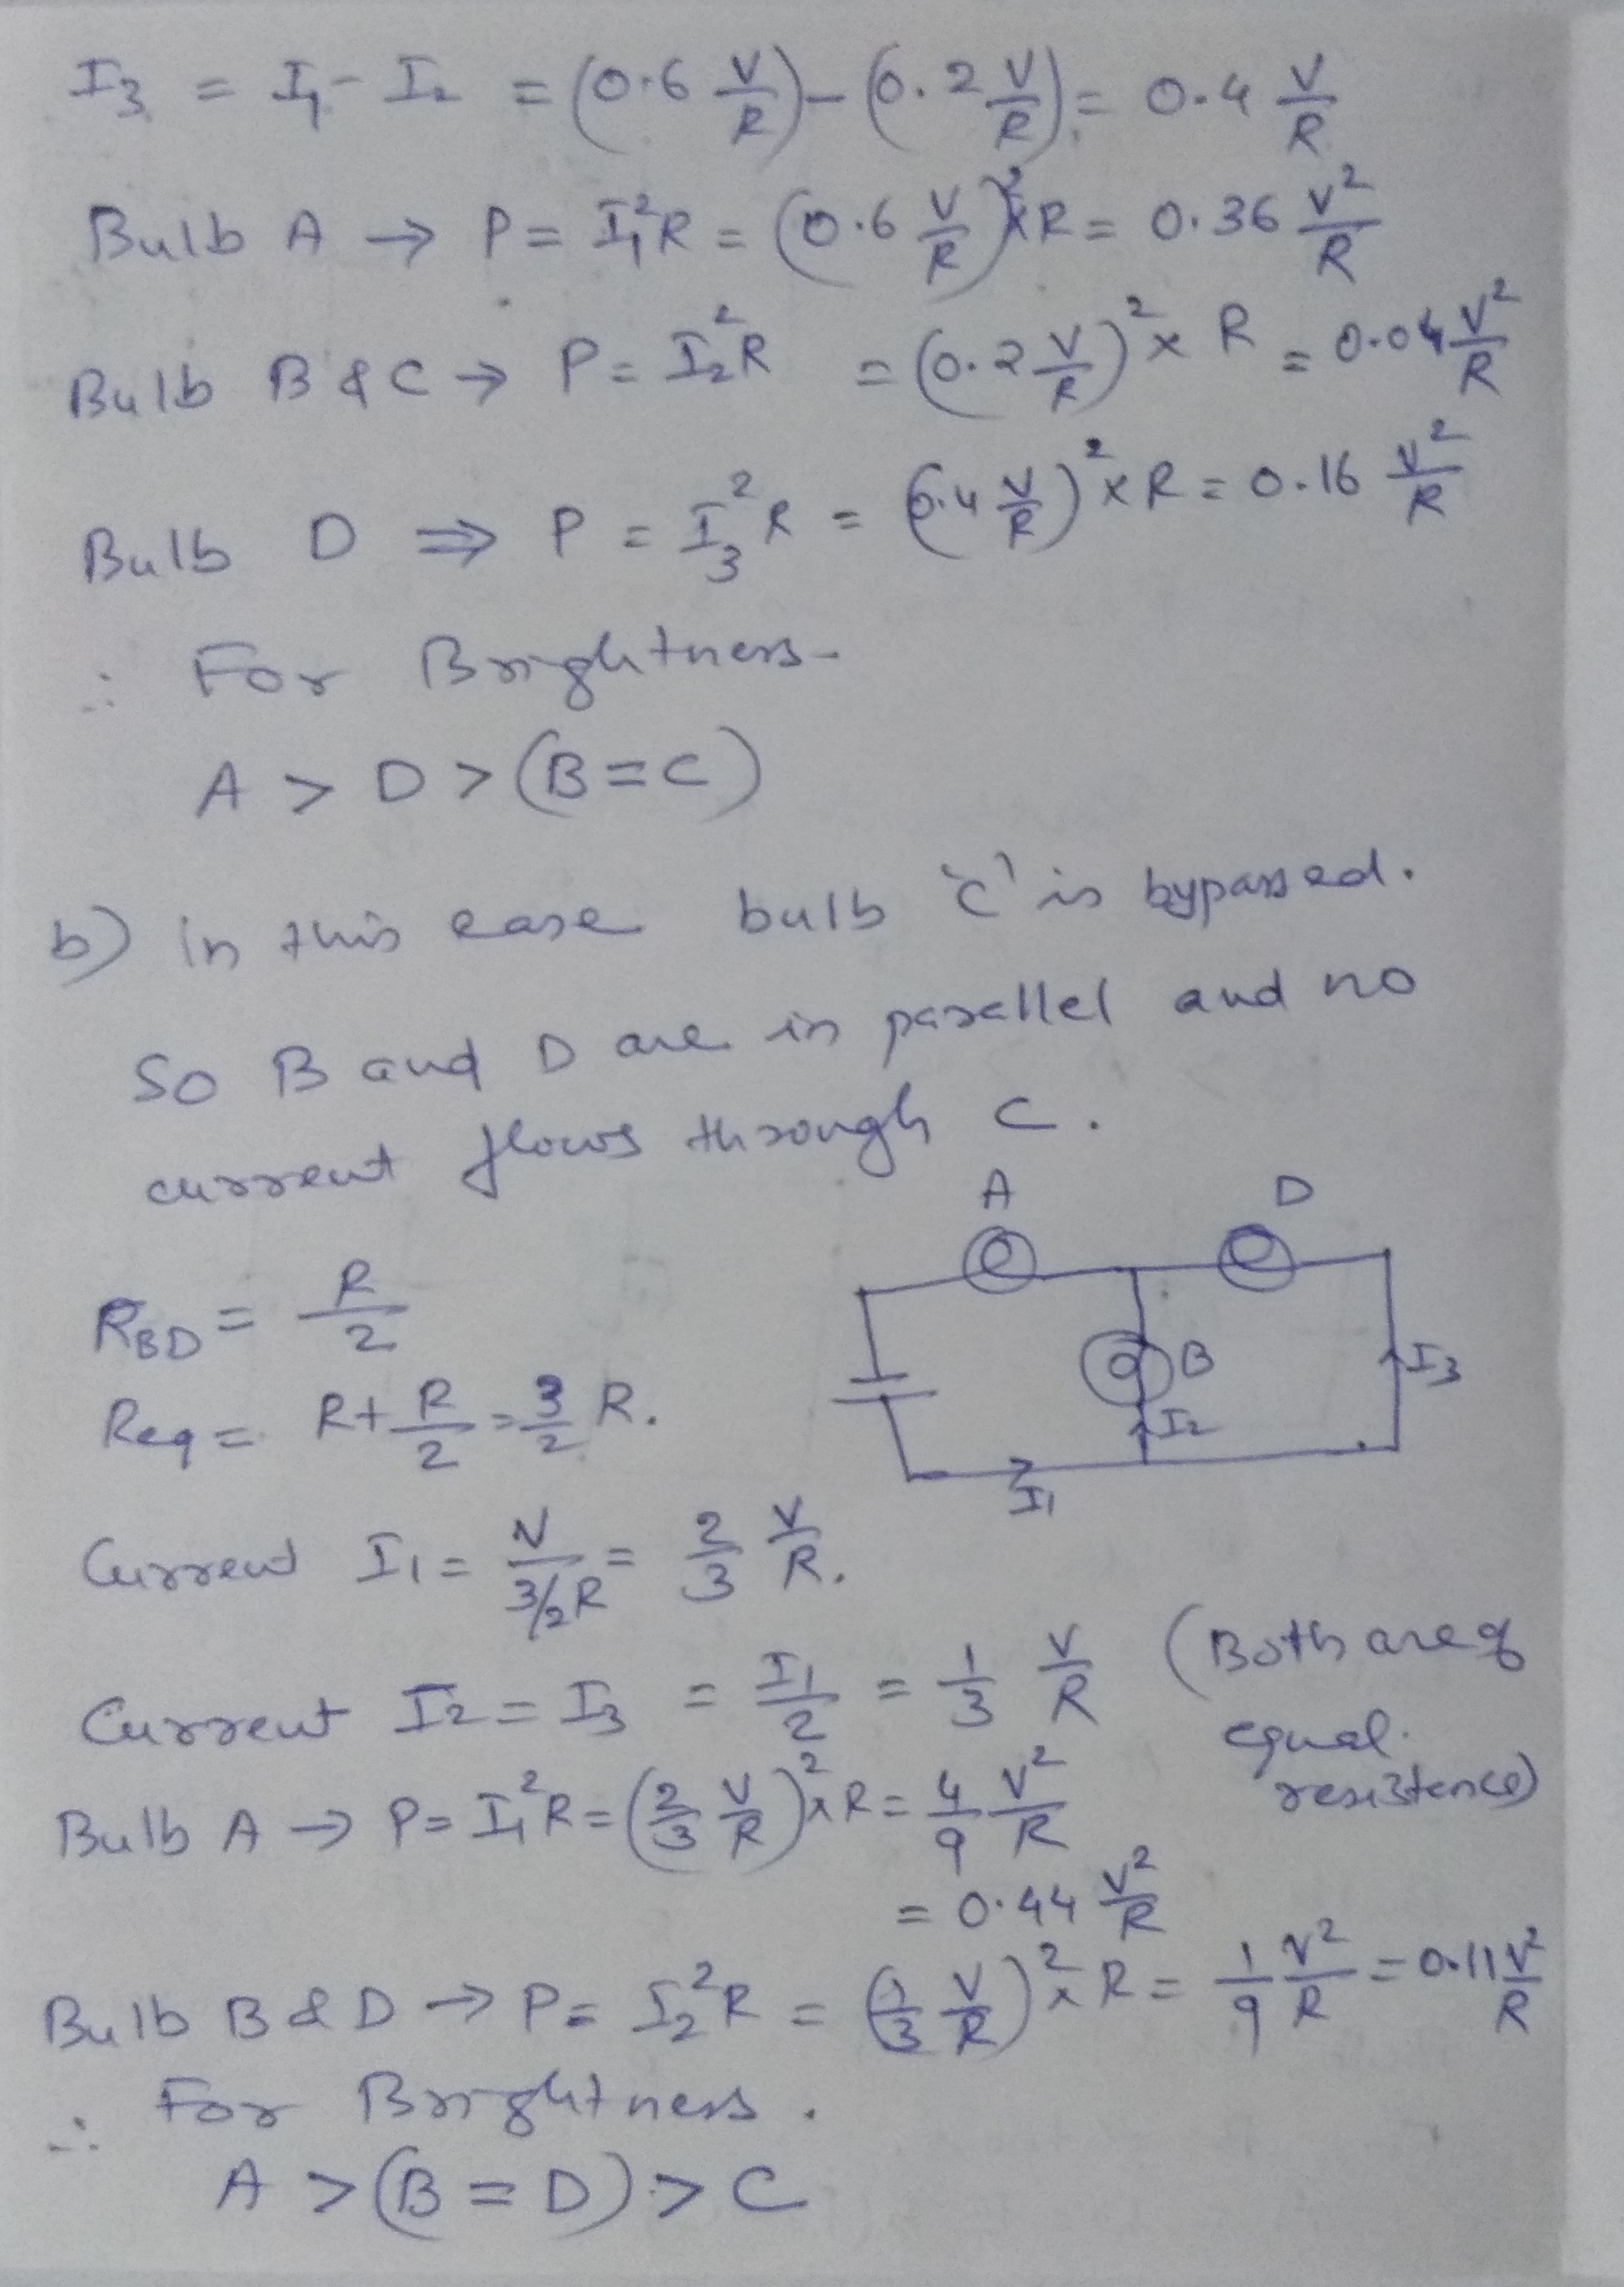 I₃ = I₁ - I₂ = (0.6 V/R) - (0.2 V/R) = 0.4 V/R
Bulb A → P = I₁²R = (0.6 V/R)² x R = 0.36 V²/R
Bulb B & C → P = I₂²R = (0.2 V/R)² x R = 0.04 V²/R
Bulb D ⇒ P = I₃²R = (0.4 V/R)² x R = 0.16 V²/R
∴ For Brightness -
A > D > (B = C)
b) in this case bulb 'C' is bypassed.
So B and D are in parallel and no
current flows through C.
A D
R_BD = R/2
B I₃
Req = R + R/2 = 3/2 R.
I₂
I₁
Current I₁ = V/(3/2 R) = 2/3 V/R.
Current I₂ = I₃ = I₁/2 = 1/3 V/R (Both are of
equal.
resistence)
Bulb A → P = I₁²R = (2/3 V/R)² x R = 4/9 V²/R
= 0.44 V²/R
Bulb B & D → P = I₂²R = (1/3 V/R)² x R = 1/9 V²/R = 0.11 V²/R
∴ For Brightness.
A > (B = D) > C